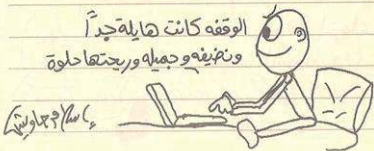 الوقفه كانت هايلة جداً
ونضيفه و جميله وريحتها حلوة